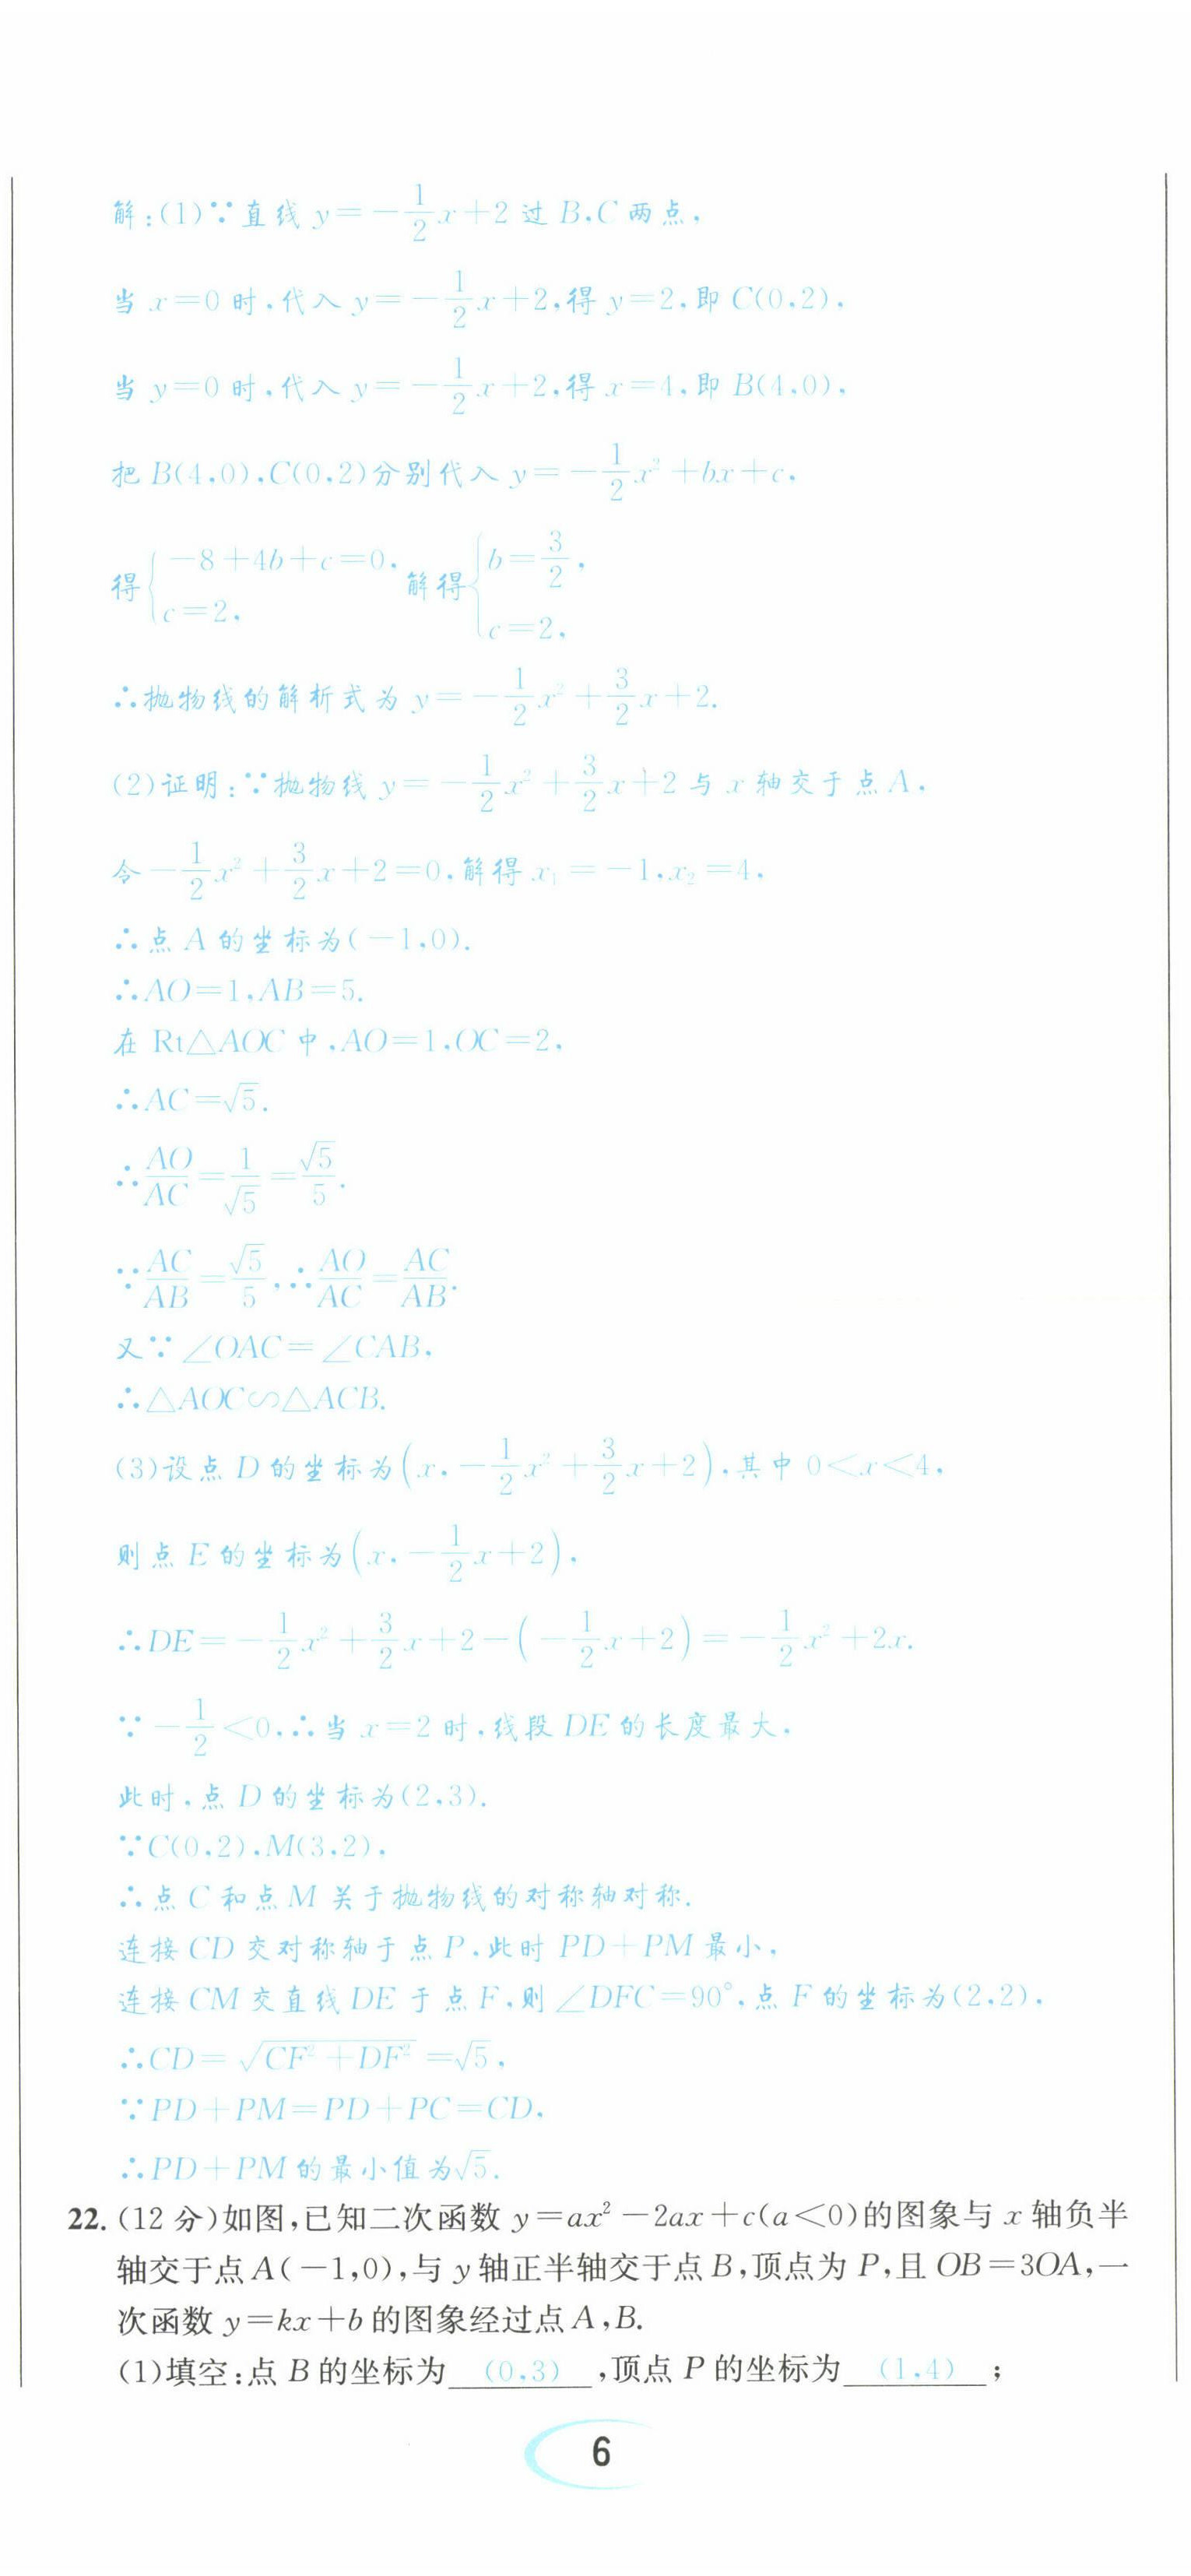 解:(1)∵直线 y=-1/2x+2 过 B,C 两点,
当 x=0 时,代入 y=-1/2x+2,得 y=2,即 C(0,2),
当 y=0 时,代入 y=-1/2x+2,得 x=4,即 B(4,0),
把 B(4,0),C(0,2)分别代入 y=-1/2x²+bx+c,
得{-8+4b+c=0, c=2, 解得{b=3/2, c=2,
∴抛物线的解析式为 y=-1/2x²+3/2x+2.
(2)证明:∵抛物线 y=-1/2x²+3/2x+2 与 x 轴交于点 A,
令-1/2x²+3/2x+2=0,解得 x₁=-1,x₂=4,
∴点 A 的坐标为(-1,0).
∴AO=1,AB=5.
在 Rt△AOC 中,AO=1,OC=2,
∴AC=√5.
∴AO/AC=1/√5=√5/5.
∵AC/AB=√5/5,∴AO/AC=AC/AB.
又∵∠OAC=∠CAB,
∴△AOC∽△ACB.
(3)设点 D 的坐标为(x,-1/2x²+3/2x+2),其中 0<x<4,
则点 E 的坐标为(x,-1/2x+2),
∴DE=-1/2x²+3/2x+2-(-1/2x+2)=-1/2x²+2x.
∵-1/2<0,∴当 x=2 时,线段 DE 的长度最大,
此时,点 D 的坐标为(2,3).
∵C(0,2),M(3,2),
∴点 C 和点 M 关于抛物线的对称轴对称.
连接 CD 交对称轴于点 P,此时 PD+PM 最小,
连接 CM 交直线 DE 于点 F,则∠DFC=90°,点 F 的坐标为(2,2),
∴CD=√(CF²+DF²)=√5,
∵PD+PM=PD+PC=CD,
∴PD+PM 的最小值为√5.
22.(12 分)如图,已知二次函数 y=ax²-2ax+c(a<0)的图象与 x 轴负半
轴交于点 A(-1,0),与 y 轴正半轴交于点 B,顶点为 P,且 OB=3OA,一
次函数 y=kx+b 的图象经过点 A,B.
(1)填空:点 B 的坐标为 (0,3) ,顶点 P 的坐标为 (1,4) ;
6